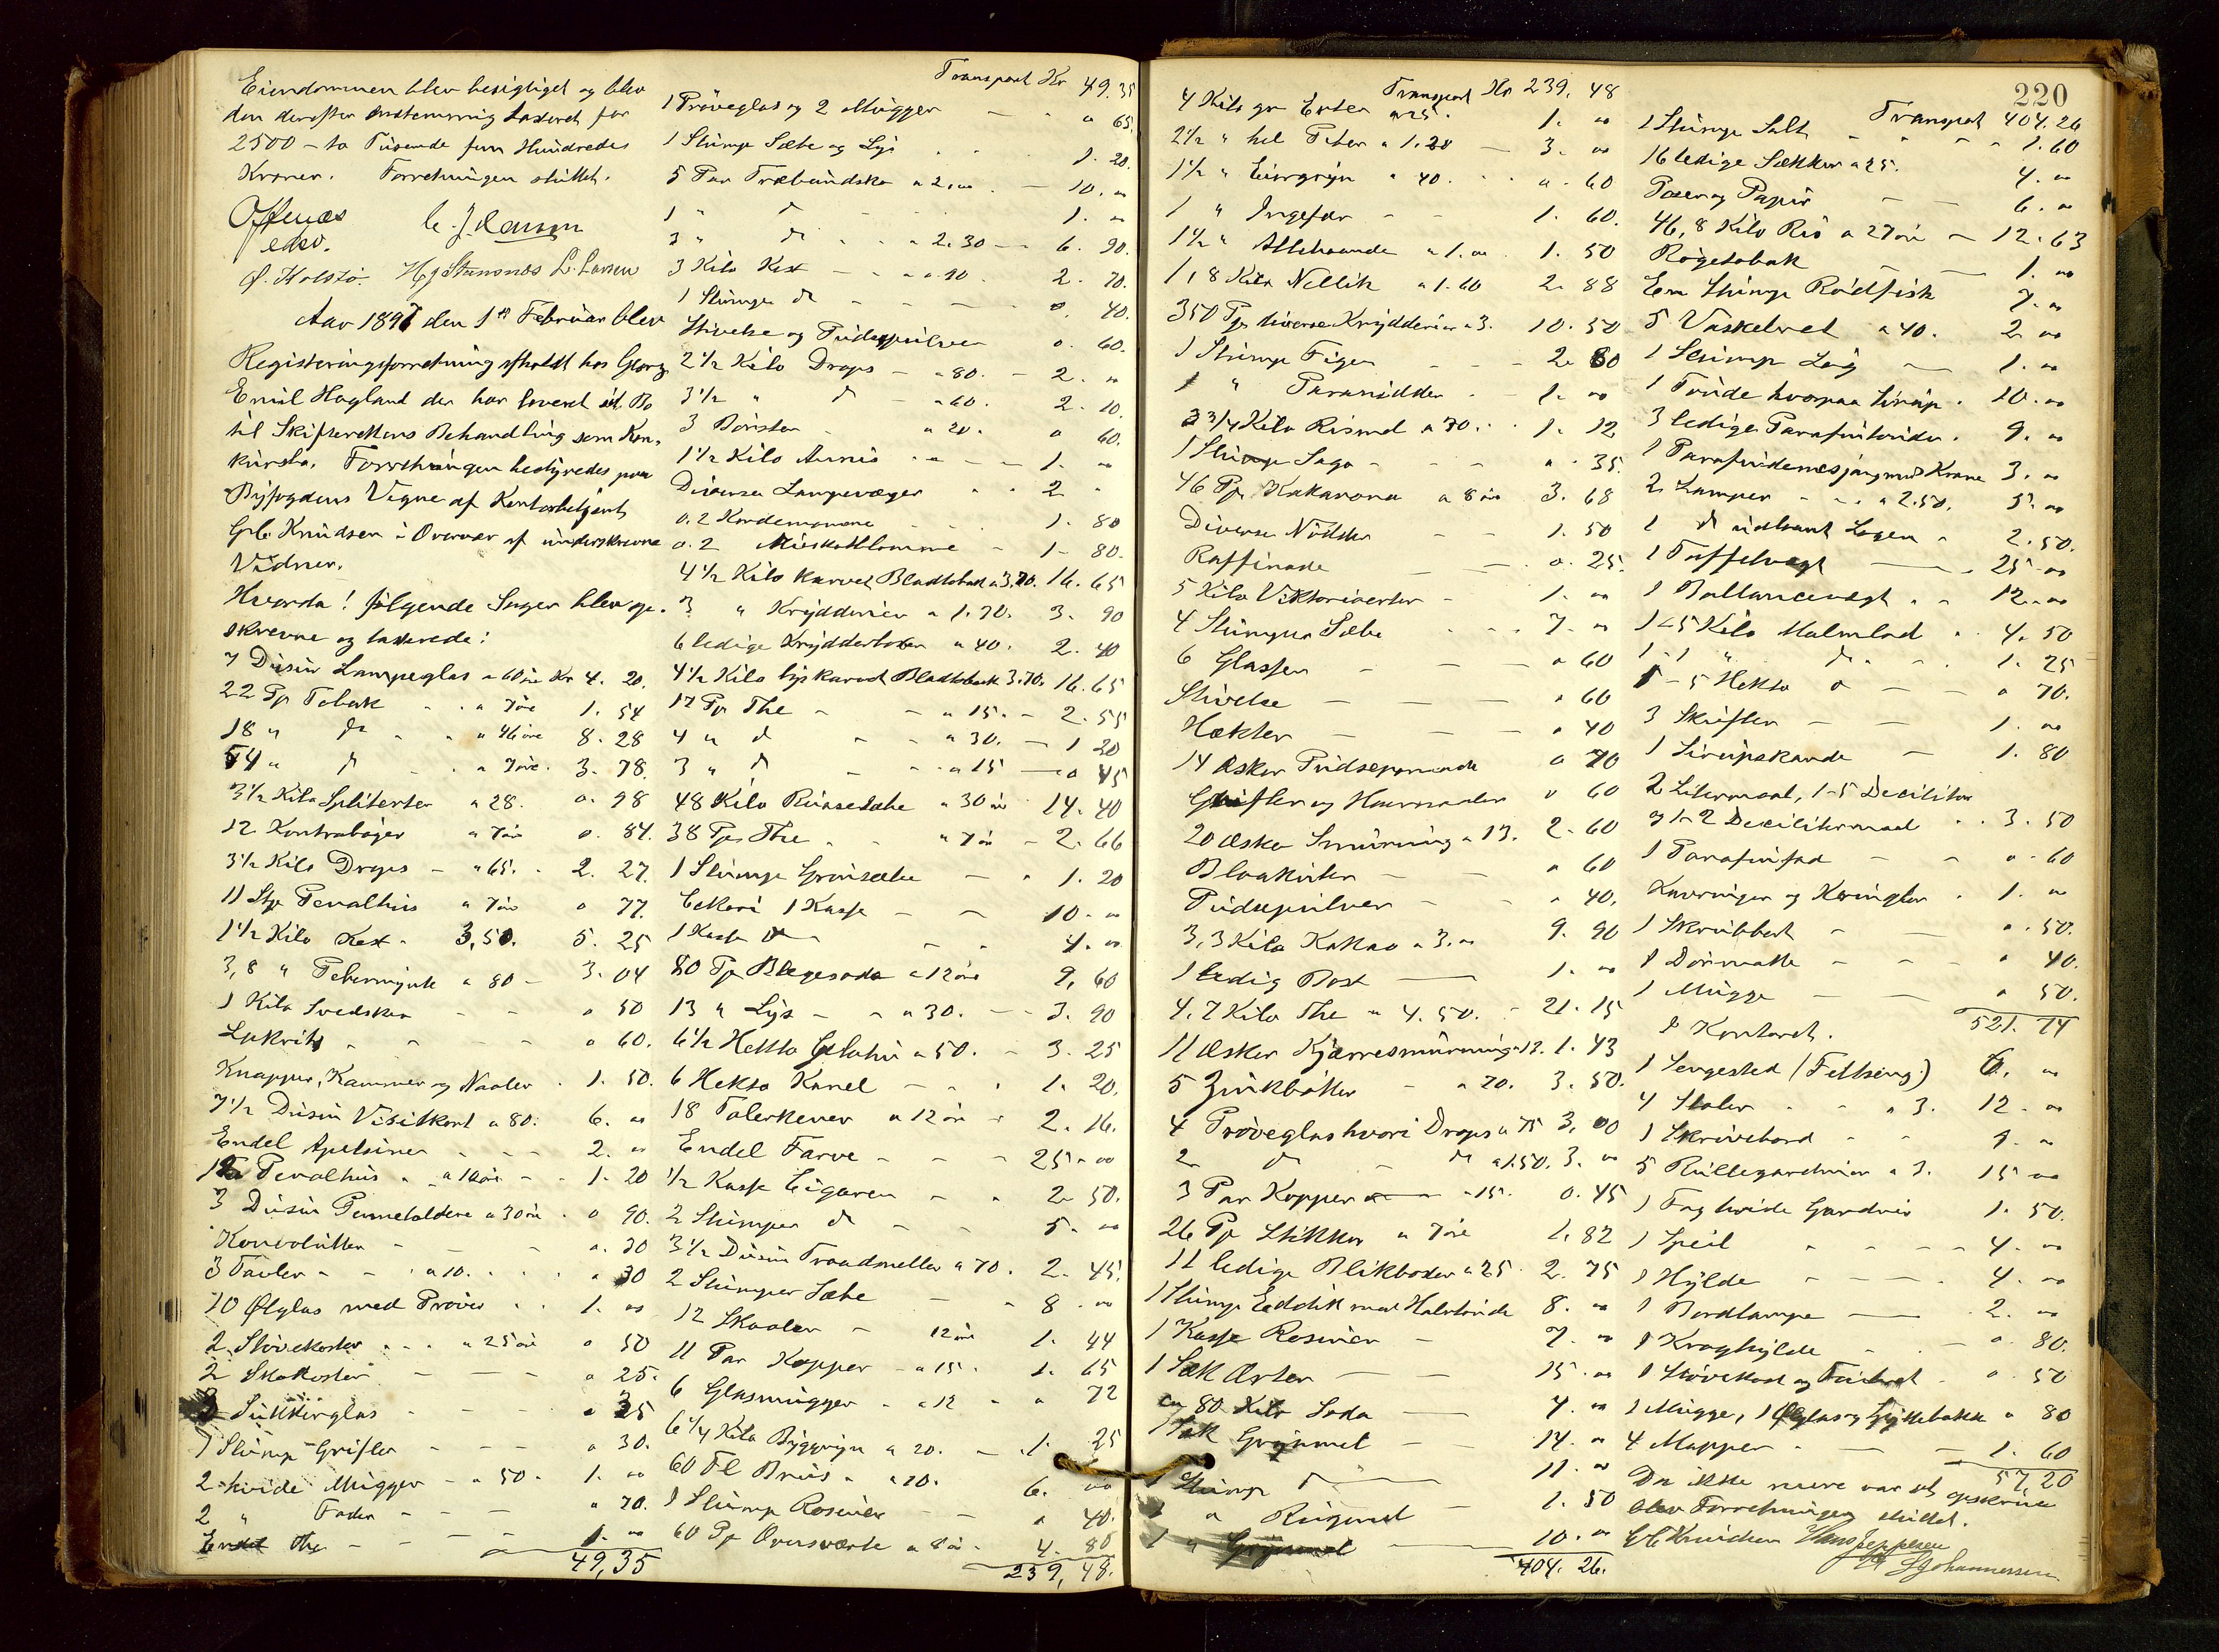 Eiendommen blev besigtiget og blev
den derefter enstemmig taxeret for
2500 – to Tusende fem Hundrede
Kroner. Forretningen sluttet.
Offenæs C. J. Hansen
edsv.
O. Holstö. L. Larsen
Aar 1897 den 1ste Februar blev
Registeringsforretning afholdt hos Georg
Emil Hogland der har leveret sit Bo
til Skifterettens Behandling som Kon-
kursbo. Forretningen bestyredes paa
Byfogdens Vegne af Kontorbetjent
Knudsen i Overvær af underskrevne
Vidner.
Hvorda! følgende Sager blev op-
skrevne og taxerede:
7 Dusin Lampeglas a 60 öre Kr 4. 20.
22 Pp Tobak - - a 7 öre 1. 54
18 " do - - a 46 öre 8. 28
54 " do - - a 7 öre. 3. 78.
3 1/2 Kilo Spliterter a 28. 0. 98
12 Kontrabøger a 7 öre 0. 84.
3 1/2 Kilo Drops - " 65. - 2. 27.
11 Stp Penalhus a 7 öre 0 77.
1 1/2 Kilo Kext - 3,50. 5. 25
3,8 " Pebermynte a 80 - 3. 04
1 Kilo Svedsker - - 0 50
Lakrits - - - - 0 60.
Knapper, Kammer og Naaler - 1. 50.
7 1/2 Dusin Visitkort a 80. 6. 00
Endel Apelsiner - - - 2. 00
12 Penalhus - a 10 öre - - 1. 20
3 Dusin Penneholdere a 30 öre - 0 90.
Konvolutter - - - 0. 30
3 Tavler - - a 10. - - 0 30
10 Ølglas med Prøver - - 1. 00
2 Støvekoster - - - a 25 öre 0 50
2 Skokoster - - - 0 25.
Sukkerglas - - - 0 35
1 Slump Grifler - - - 0 30.
2 hvide Mugger - a 50 - 1. 00
2 " Fade - - - 0 70.
Endel The - - - 1. 00
49,35
Transport Kr 49.35
1 Prøveglas og 2 Mugger - - 0 65.
1 Slump Sæbe og Lys - - 1. 20.
5 Par Træbundsko a 2.00 - - 10. 00
1 " do - - - 1. 00
3 " do - - - a 2.30 - 6. 90.
3 Kilo Kext - - - a 90 - 2. 70.
1 Slump do - - - - 0. 40.
Stivelse og Pudsepulver 0. 60.
2 1/2 Kilo Drops - - 80. - 2. 00
3 1/2 " do - - 60. 2. 10.
3 Børster - - a 20. 0 60.
1 1/2 Kilo Annis - - - 1. 00
Diverse Lampevæger - - 2 -
0.2 Kardemomme - - - 1. 80
0.2 Muskatblomme - 1- 80.
4 1/2 Kilo karvet Bladtobak a 3,70. 16. 65
3 " Krydderier a 1.30. 3. 90
6 ledige Krydderbokser a 40. 2. 40
4 1/2 Kilo lys karvet Bladtobak 3.70. 16.65
17 Pp The - - a 15. - 2. 55
4 " do - - a 30. - 1 20
3 " do - - - a 15 - 0 45
48 Kilo Rusesæbe a 30 öre 14. 40
38 Pp The - - a 7 öre - 2. 66
1 Slump Grønsæbe - - 1. 20
Cekori 1 Kasse - - 10. 00
1 Kasse do - - 4. 00
80 Pp Blegesoda a 12 öre 9, 60
13 " Lys - - a 30. - - 3. 90
6 1/2 Hekto a 50. - 3. 25
6 Hekto Kanel - - - 1. 20.
18 Talerkener a 12 öre - 2. 16.
Endel Farve - - - 25. 00
1/2 Kasse Cigarer - - 2. 50.
2 Slumper do - - 5. 00
3 1/2 Dusin Traadneller a 70. 2. 45.
2 Slumper Sæbe - - 8. 00
12 Skaaler - 12 öre 1. 44
11 Par Kopper - a 15. 1. 65
6 Glasmugger - a 12 - 0 72
6 1/4 Kilo Byggryn a 20. - 1. 25
60 Fl Brus - a 10. 6. 00
1 Slump Rosiner - - 0 40.
60 Pp Ovnsværte a 8 öre - 4. 80
239, 48.
220
Transport Kr 239, 48
4 Kilo gr Erter a 25. 1. 00
2 1/2 " hel Peber a 1.20 - 3. 00
1 1/2 " a 40. - - 0. 60
1 " Ingefær - - 1. 60.
1 1/2 " Allehaande a 1.00 1. 50
1,8 Kilo Nellik a 1.60 2. 88
350 Pp diverse Krydderier a 3. 10. 50
1 Slump Figen - - - 2. 80
1 " Paranødder - - 1. 00
3 3/4 Kilo Rismel a 30. - 1. 12
1 Slump Sago - - - 0. 35.
46 Pp Makarona a 8 öre 3. 68
Diverse Nødder - - 1. 50
Raffinade - - 0. 25.
5 Kilo Viktoriaerter - 1. 00
4 Slumper Sæbe - - - 7. 00
6 Glasser - - - 0 60
Stivelse - - - 0 60
Hækter - - - 0 40
14 Æsker Pudsepomade 0 70
Grifler og Haarnaaler 0 60
20 Æsker Smurning a 13. 2. 60
Blaakulør - - - 0 60
Pudsepulver - - - 0 40.
3,3 Kilo Kakao a 3.00 9. 90
1 ledig Box - 1. 00
4.7 Kilo The a 4.50. - 21. 15
11 Æsker Kjærresmurning a 13. 1. 43
5 Zinkbøtter - a 70. 3. 50.
4 Prøveglas hvori Drops a 75 3, 00
2 do - do a 1.50. 3. 00
3 Par Kopper - a 15. 0. 45
26 Pp Stikker a 7 öre 1. 82
11 ledige Blikbokser a 25. 2. 75
1 Slump Eddik med Halvtønde 8. 00
1 Kasse Rosiner - 7. 00
1 Sæk Erter - - 15. 00
ca 80 Kilo Soda - 4. 00
1 Sæk Grønmel - - 14. 00
1 Slump do - 11. 00
1 " Rugmel - 1. 50
1 " - 10. 00
404. 26.
Transport 404. 26
1 Slump Salt - - - - 1. 60
16 ledige Sækker a 25. 4. 00
Poser og Papir - - 6. 00
46,8 Kilo Ris a 27 öre - 12. 63
Røgetobak - - 1. 00
En Slump Rødfisk 7. 00
5 Vaskebræt a 40. 2. 00
1 Slump Løg - 1. 00
1 Tønde hvorpaa Sirup. 10. 00
3 ledige Parafintønder. 9. 00
1 Parafindemesjang med Krane 3. 00
2 Lamper - - - a 2.50. 5. 00
1 do udbrænt Logen - 2. 50.
1 Taffelvægt - - 25. 00
1 Ballancevægt - - 12. 00
1-5 Kilo Malmlod - - 4. 50
1-1 " do - - 1. 25
1-5 Hekto do - - 0 70.
3 Skuffer - - 1. 00
1 Sirupskande - 1. 80
2 Litermaal, 1-5 Deciliter
og 1-2 Decilitermaal - - 3. 50
1 Parafinfad - - 0. 60
Kavringer og Kringler - 1. 00
1 Skrubbert - - 0. 50.
1 Dørmatte - - - 0 40.
1 Mugge - - 0 50.
521. 74
I Kontoret.
1 Sengested (Feltseng) 6. 00
4 Stoler - - a 3. 12. 00
1 Skrivebord - - 9. 00
5 Rullegardiner a 3. 15 00
1 Fag hvide Gardiner 1. 50.
1 Speil - - - - 4. 00
1 Hylde - - - - 4. 00
1 Bordlampe - 2. 00
1 Kraghylde - - 0. 80.
1 Støvekost og - 0. 50
1 Mugge, 1 Ølglas og 0 80
4 Mapper - - - 1. 60
57 20
Da ikke mere var at opskrive
blev Forretningen sluttet.
Knudsen Hans Jeppesen
Johannessen